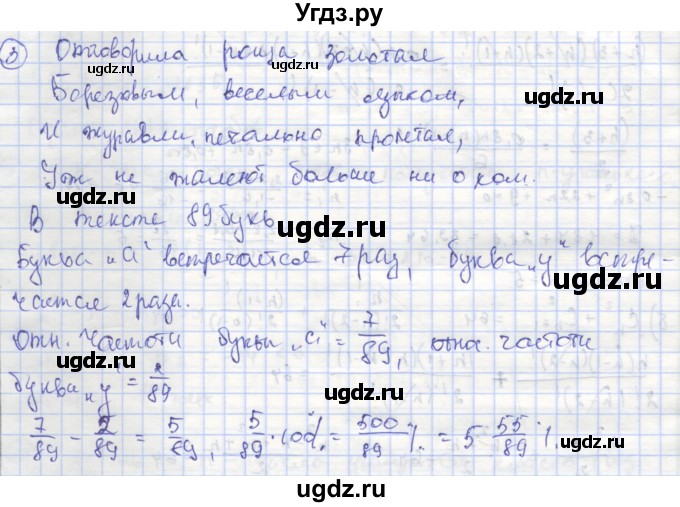 Угдз.ру
3 Отговорила роща золотая
Березовым, веселым языком,
И журавли, печально пролетая,
Уж не жалеют больше ни о ком.
В тексте 89 букв
Буква „а“ встречается 7 раз, буква „у“ встре-
чается 2 раза.
Отн. частота буквы „а“ = 7/89, отн. частота
буква „у“ = 2/89
7/89 - 2/89 = 5/89, 5/89 · 100% = 500/89 % = 5 55/89 %.
ugdz.ru
ugdz.ru
ugdz.ru
ugdz.ru
ugdz.ru
ugdz.ru
ugdz.ru
ugdz.ru
ugdz.ru
ugdz.ru
ugdz.ru
ugdz.ru
ugdz.ru